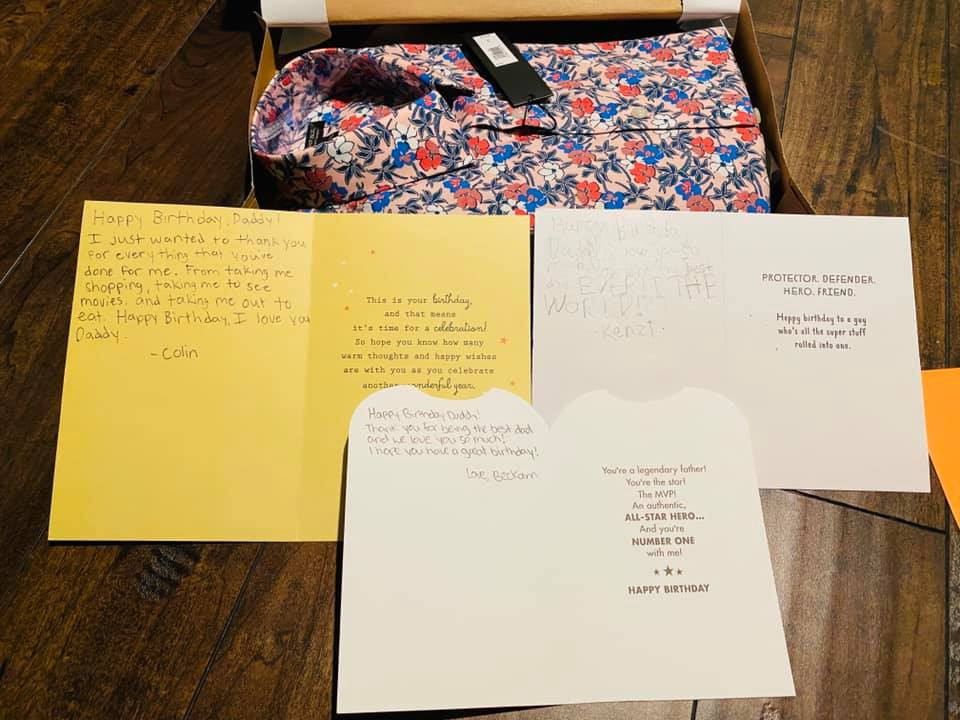 Happy Birthday, Daddy!
I just wanted to thank you
for everything that you've
done for me. From taking me
shopping, taking me to see
movies, and taking me out to
eat. Happy Birthday, I love you
Daddy.
-Colin
This is your birthday,
and that means
it's time for a celebration!
So hope you know how many
warm thoughts and happy wishes
are with you as you celebrate
another wonderful year.
Happy birthday
Daddy!
best
EVER II THE
WORLD!
Kenzi.
PROTECTOR. DEFENDER.
HERO. FRIEND.
Happy birthday to a guy
who's all the super stuff
rolled into one.
Happy Birthday Daddy!
Thank you for being the best dad
and we love you so much!
I hope you have a great birthday!
Love, Beckam
You're a legendary father!
You're the star!
The MVP!
An authentic,
ALL-STAR HERO...
And you're
NUMBER ONE
with me!
HAPPY BIRTHDAY